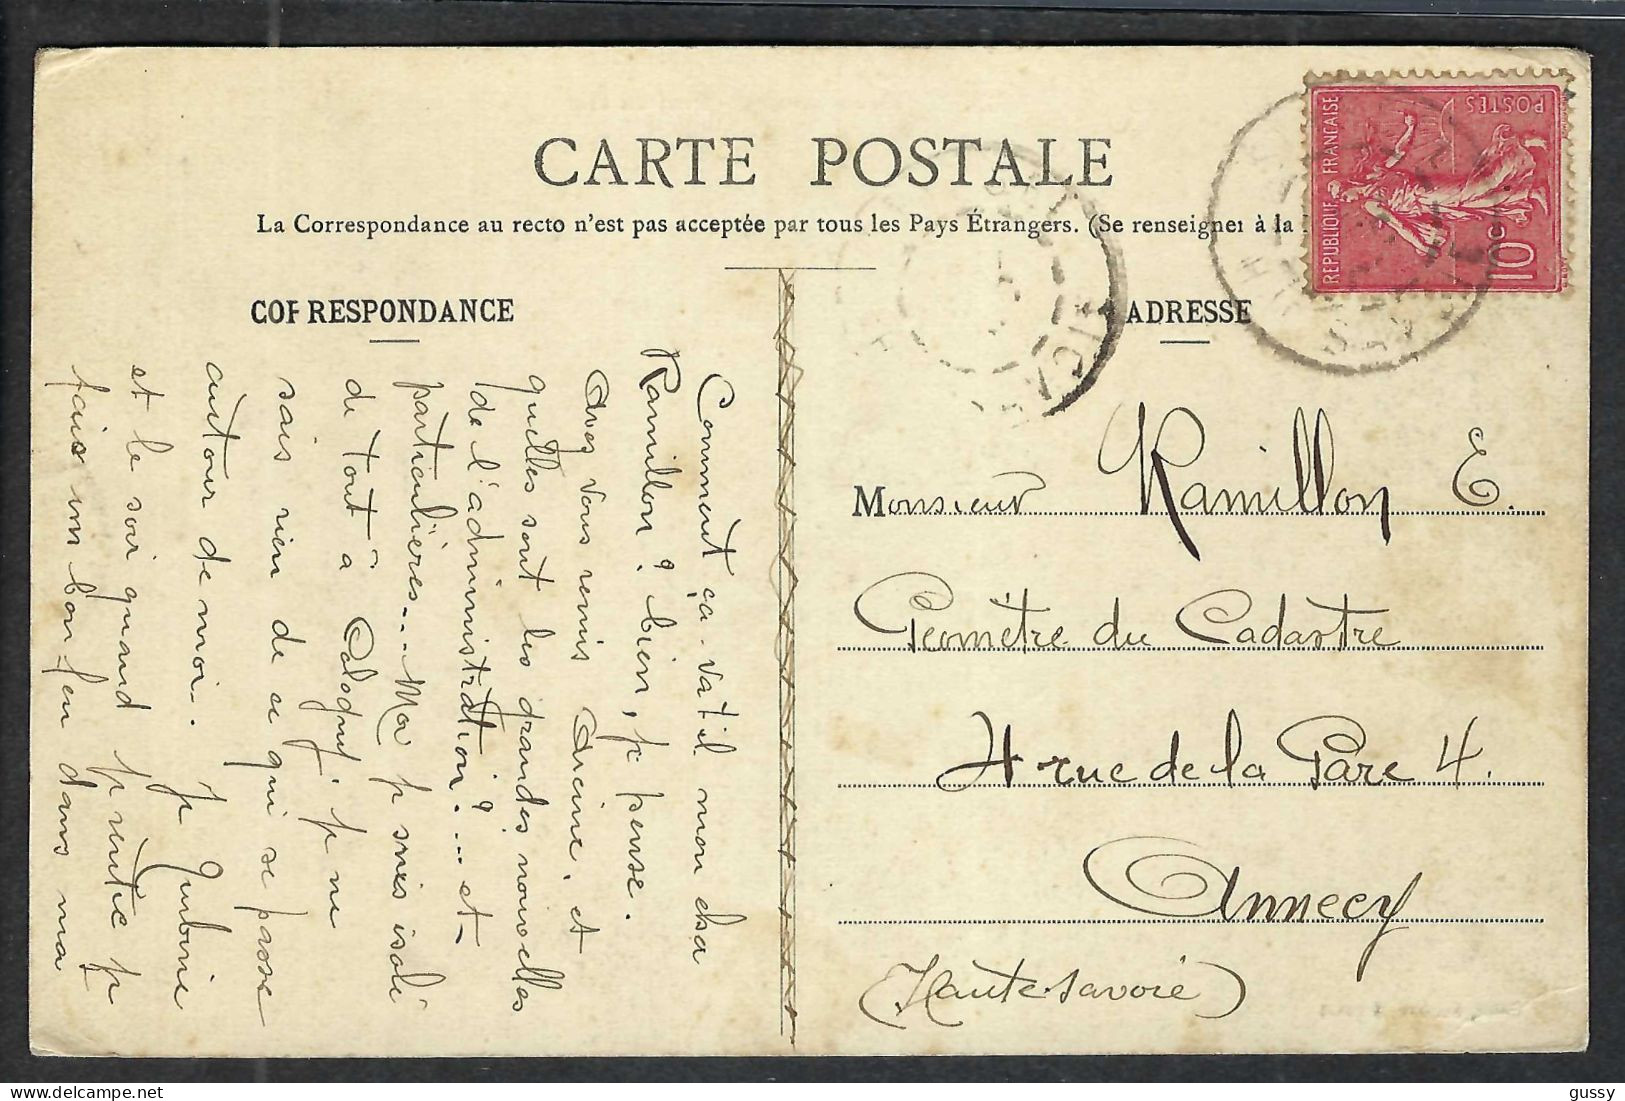 CARTE POSTALE
La Correspondance au recto n'est pas acceptée par tous les Pays Étrangers. (Se renseigner à la
CORRESPONDANCE
ADRESSE
REPUBLIQUE FRANCAISE
POSTES
10c
Comment ça-va t'il mon cher
Ramillon? bien, je pense.
Avez vous remis et
quelles sont les grandes nouvelles
de l'administration? ... et
particulières... Moi je suis isolé
de tout à je ne
sais rien de ce qui se passe
autour de moi. Je
et le soir quand je rentre je
fais un bon feu dans ma
Monsieur Ramillon E.
Géomètre du Cadastre
4 rue de la Gare 4.
Annecy
(Haute Savoie)
gussy